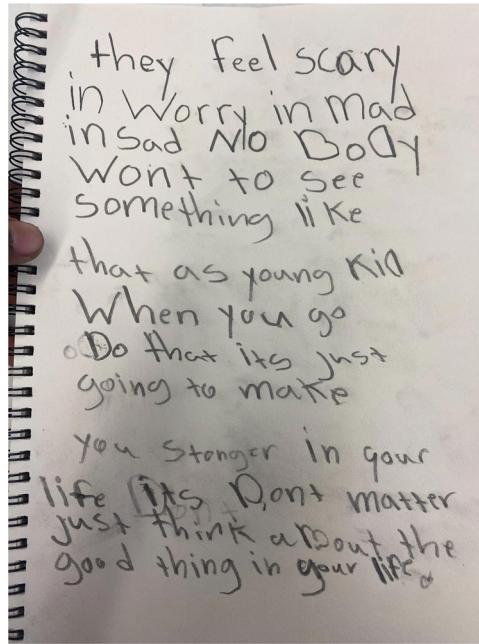 they feel scary
in Worry in mad
in sad No BoDy
Wont to see
something like
that as young kid
When you go
Do that its just
going to make
you stonger in your
life its Dont matter
just think about the
good thing in your life.